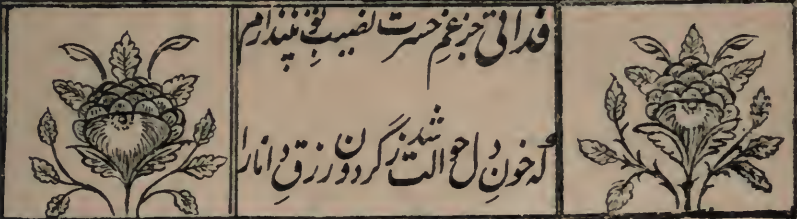 فدائی جز غمِ حسرت نصیبِ خود نپندارم
که خونِ دل حوالت شد ز گردون رزقِ دانا را